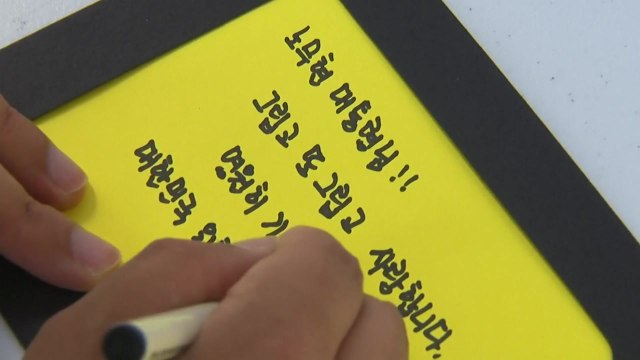 노무현 대통령님!!
그립고 또 그립고 사랑합니다.
영원히
대한민국